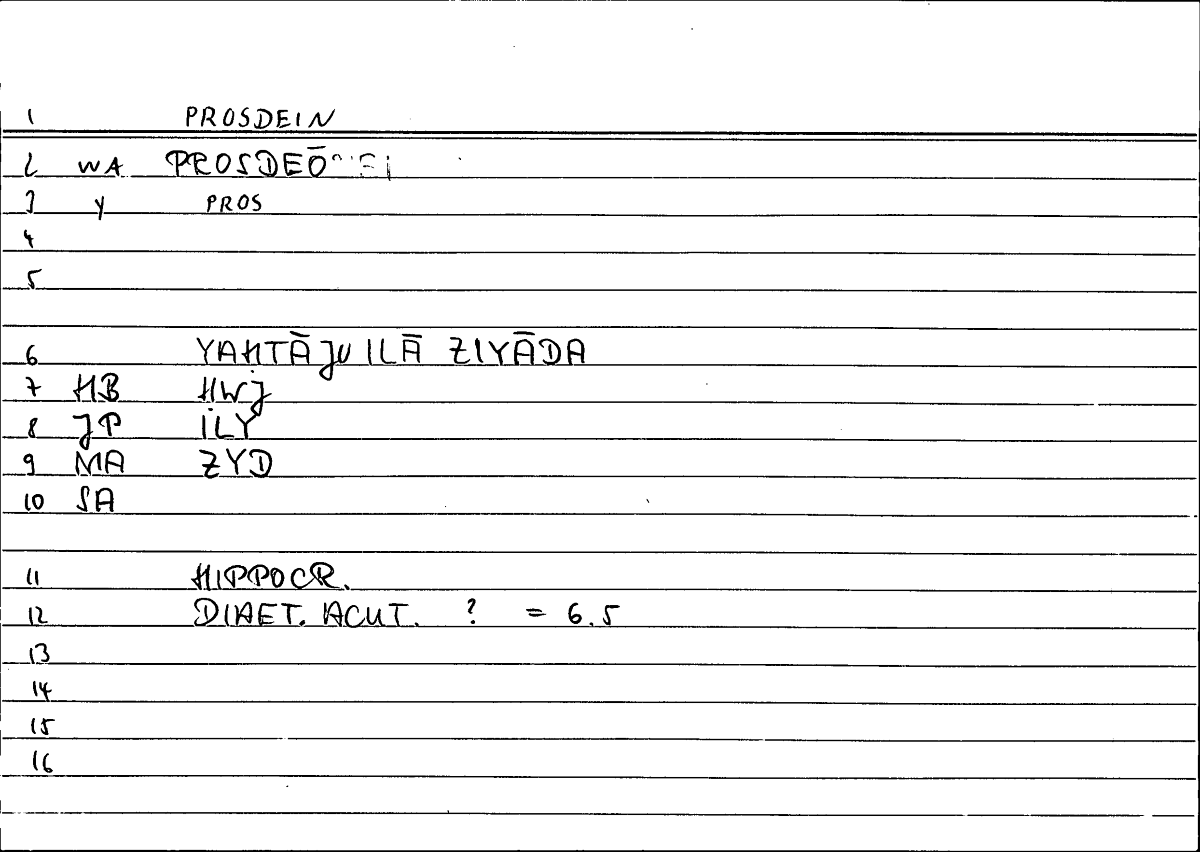 1 PROSDEIN
2 WA
3 Y PROS
4
5
6 YAHTĀJU ILĀ ZIYĀDA
7 HB HWJ
8 JP İLY
9 MA ZYD
10 SA
11 HIPPOCR.
12 DIAET. ACUT. ? = 6.5
13
14
15
16